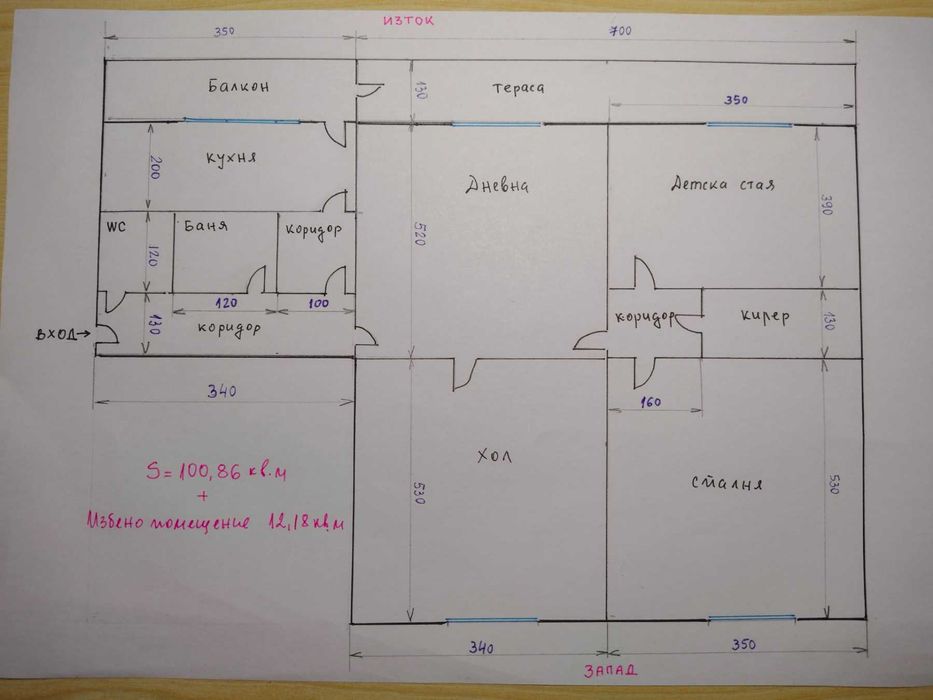 ИЗТОК
350
700
Балкон
130
тераса
350
кухня
200
Дневна
Детска стая
390
WC
Баня
коридор
120
520
120
100
коридор
кирер
130
ВХОД→
130
коридор
340
160
ХОЛ
530
спалня
530
S=100,86 кв.м
+
Избено помещение 12,18 кв.м
340
350
ЗАПАД